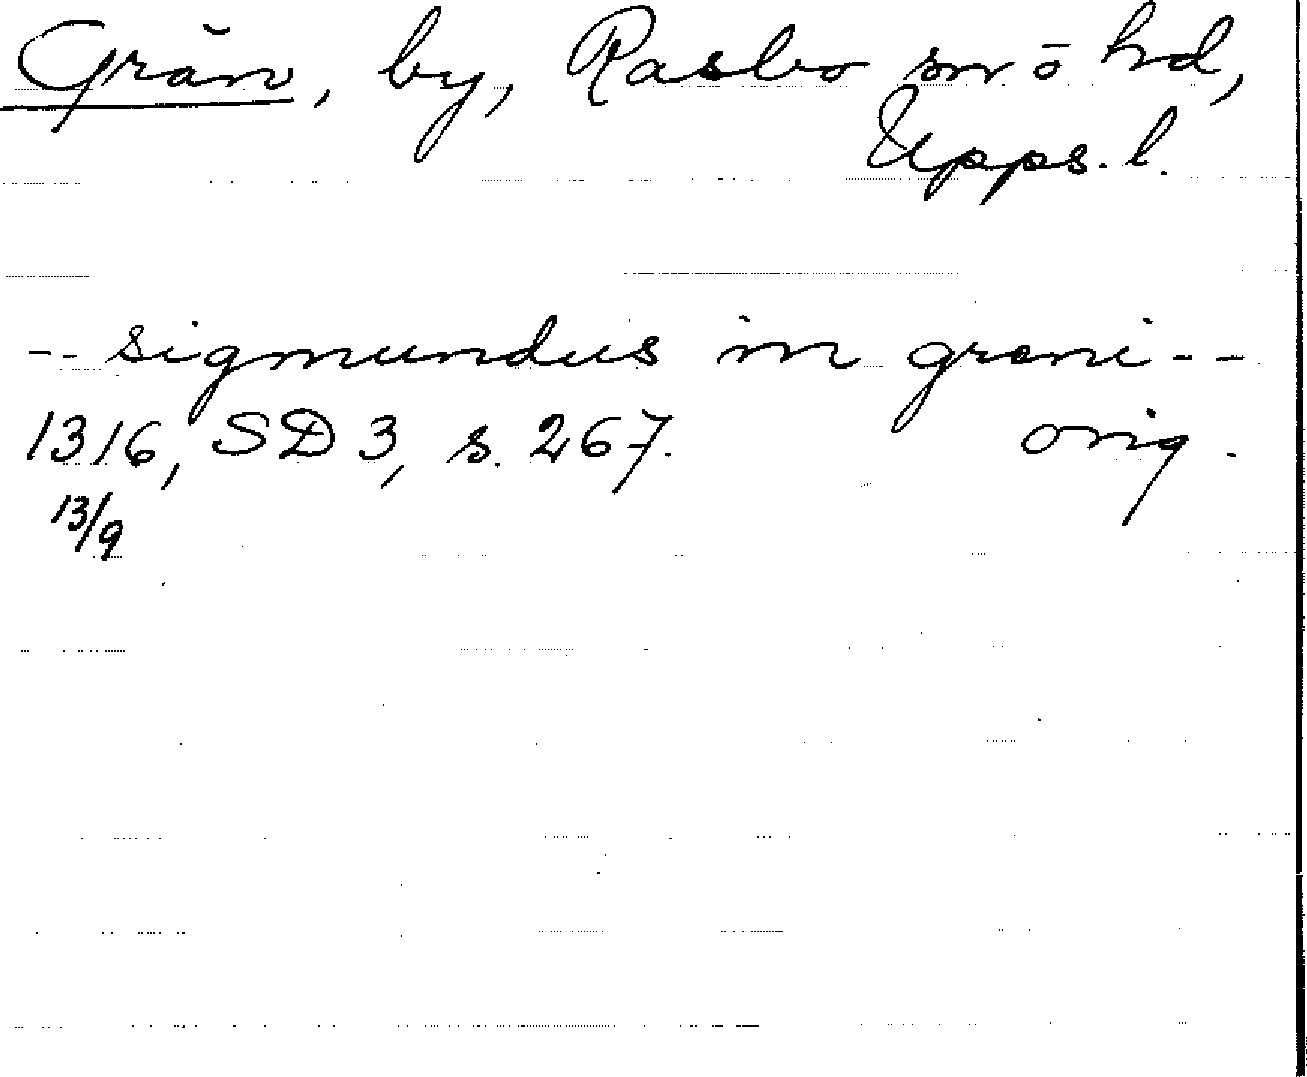 Grän, by, Rasbo sn ō hd,
Upps. l.
-- sigmundus in greni --
1316, SD 3, s. 267. orig.
13/9